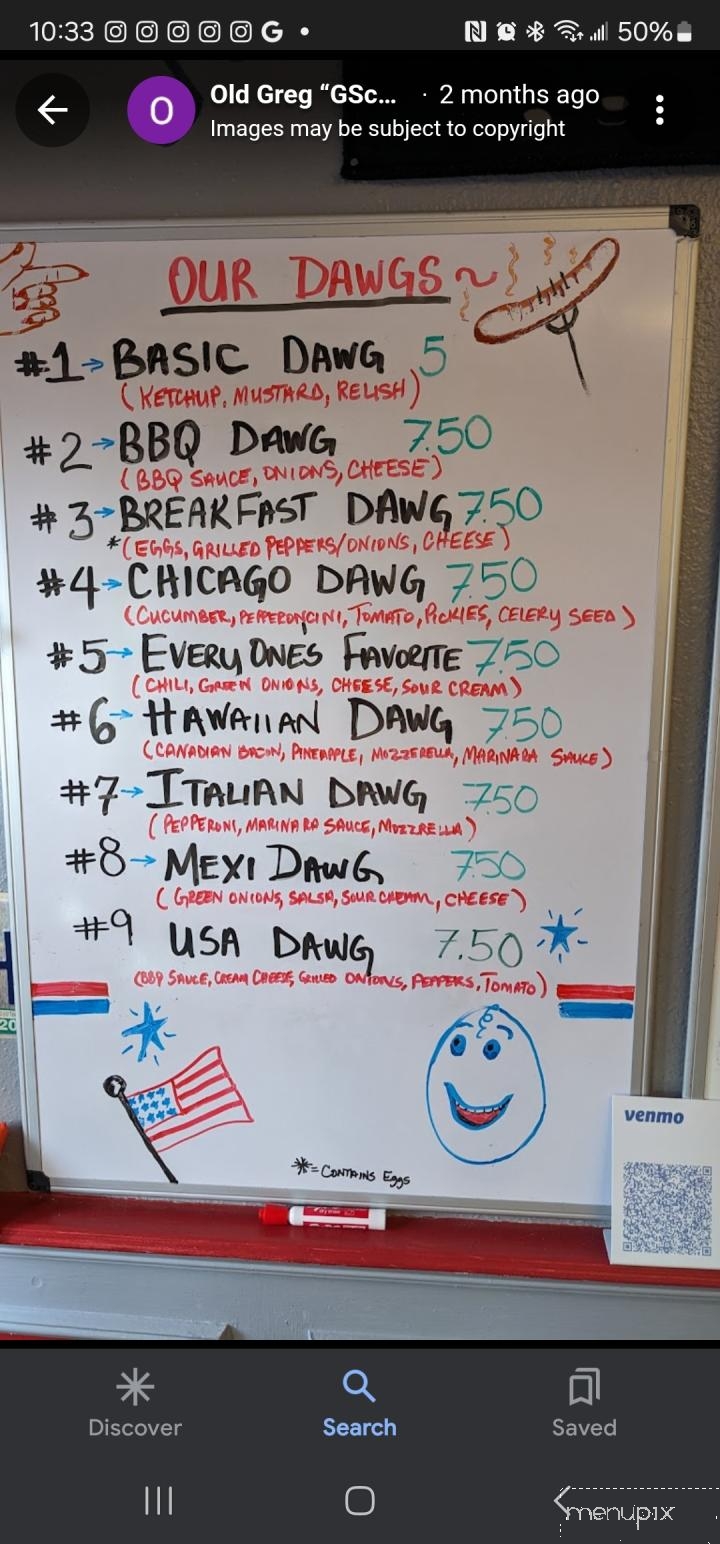 10:33 G • 50%
Old Greg “GSc... · 2 months ago
O
Images may be subject to copyright
OUR DAWGS ~
#1→ BASIC DAWG 5
(KETCHUP, MUSTARD, RELISH)
#2→ BBQ DAWG 7.50
(BBQ SAUCE, ONIONS, CHEESE)
#3→ BREAKFAST DAWG 7.50
*(EGGS, GRILLED PEPPERS/ONIONS, CHEESE)
#4→ CHICAGO DAWG 7.50
(CUCUMBER, PEPPERONCINI, TOMATO, PICKLES, CELERY SEED)
#5→ EVERYONES FAVORITE 7.50
(CHILI, GREEN ONIONS, CHEESE, SOUR CREAM)
#6→ HAWAIIAN DAWG 7.50
(CANADIAN BACON, PINEAPPLE, MOZZERELLA, MARINARA SAUCE)
#7→ ITALIAN DAWG 7.50
(PEPPERONI, MARINARA SAUCE, MOZZRELLA)
#8→ MEXI DAWG 7.50
(GREEN ONIONS, SALSA, SOUR CREAM, CHEESE)
#9 USA DAWG 7.50
(BBQ SAUCE, CREAM CHEESE, GRILLED ONIONS, PEPPERS, TOMATO)
venmo
*= CONTAINS EGGS
Discover Search Saved
menupix